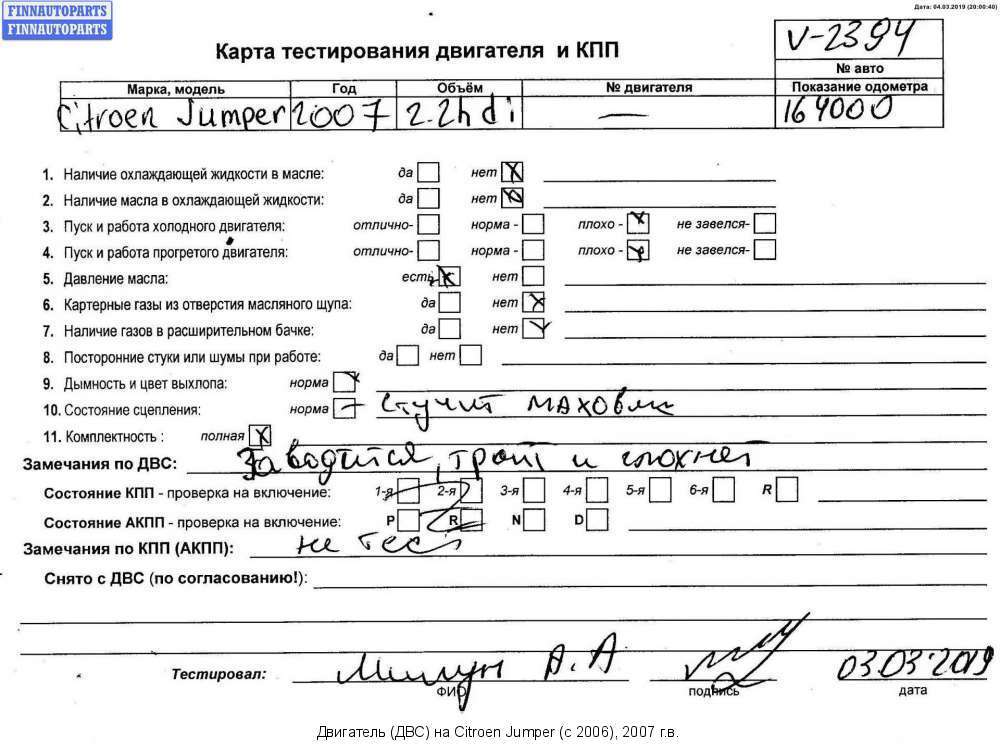 FINNAUTOPARTS
FINNAUTOPARTS
Дата: 04.03.2019 (20:00:40)
Карта тестирования двигателя и КПП
V-2394
№ авто
Марка, модель Год Объём № двигателя Показание одометра
Citroen Jumper 2007 2.2hdi — 164000
1. Наличие охлаждающей жидкости в масле: да нет
2. Наличие масла в охлаждающей жидкости: да нет
3. Пуск и работа холодного двигателя: отлично- норма - плохо - не завелся-
4. Пуск и работа прогретого двигателя: отлично- норма - плохо - не завелся-
5. Давление масла: есть нет
6. Картерные газы из отверстия масляного щупа: да нет
7. Наличие газов в расширительном бачке: да нет
8. Посторонние стуки или шумы при работе: да нет
9. Дымность и цвет выхлопа: норма
10. Состояние сцепления: норма — стучит маховик
11. Комплектность : полная
Замечания по ДВС: Заводится, троит и глохнет
Состояние КПП - проверка на включение: 1-я 2-я 3-я 4-я 5-я 6-я R
Состояние АКПП - проверка на включение: P R N D
Замечания по КПП (АКПП): не тест
Снято с ДВС (по согласованию!):
Тестировал: А.А 03.03.2019
ФИО подпись дата
Двигатель (ДВС) на Citroen Jumper (с 2006), 2007 г.в.